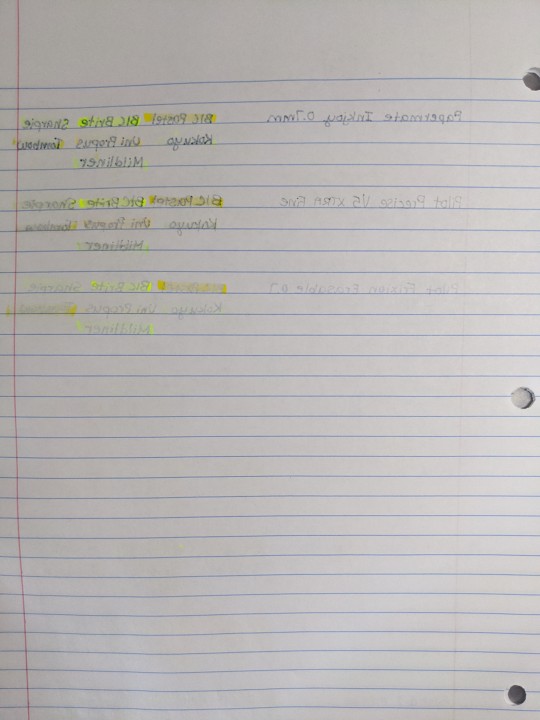 Papermate Inkjoy 0.7mm BIC Pastel BIC Brite Sharpie
Kokuyo Uni Propus Tombow
Mildliner
Pilot Precise V5 XTRA Fine BIC Pastel BIC Brite Sharpie
Kokuyo Uni Propus Tombow
Mildliner
Pilot Frixion Erasable 0.7 BIC Pastel BIC Brite Sharpie
Kokuyo Uni Propus Tombow
Mildliner